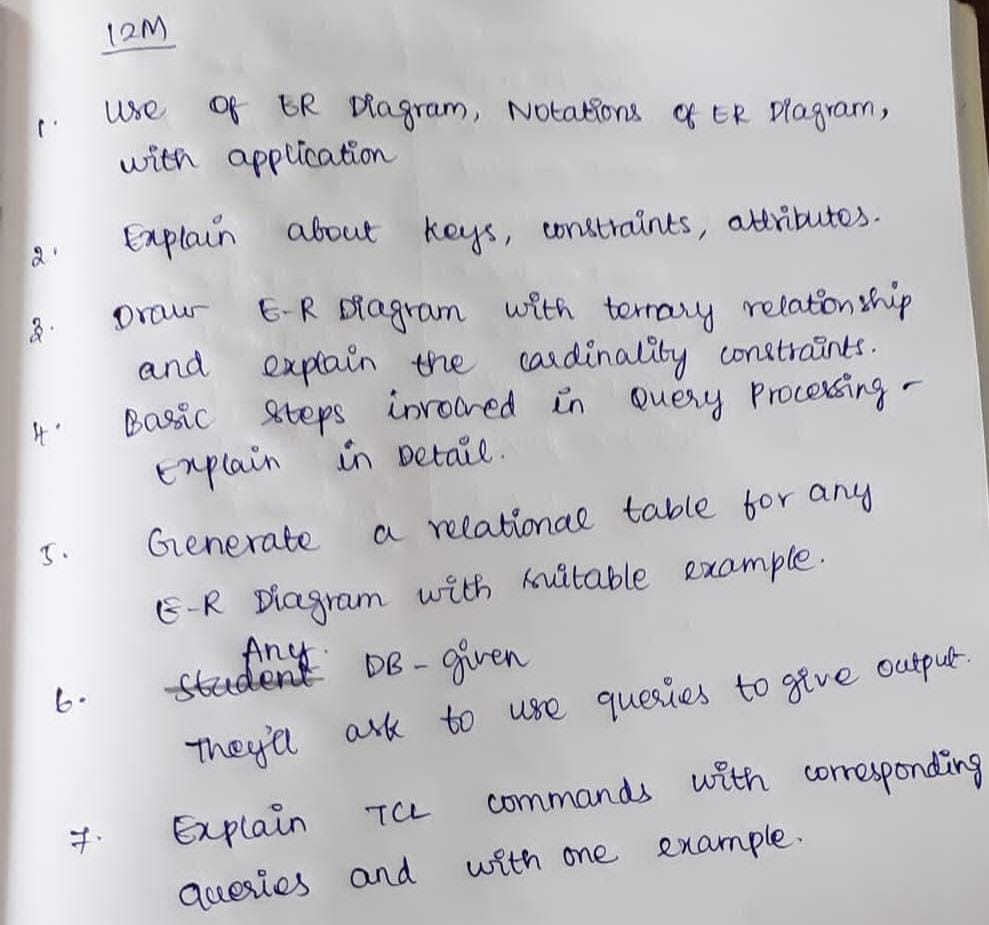 12M
1. Use of ER Diagram, Notations of ER Diagram,
with application
2. Explain about keys, constraints, attributes.
3. Draw E-R Diagram with ternary relationship
and explain the cardinality constraints.
4. Basic Steps involved in Query Processing -
Explain in Detail.
5. Generate a relational table for any
E-R Diagram with suitable example.
Any
6. Student DB - given
They'll ask to use queries to give output.
7. Explain TCL commands with corresponding
queries and with one example.